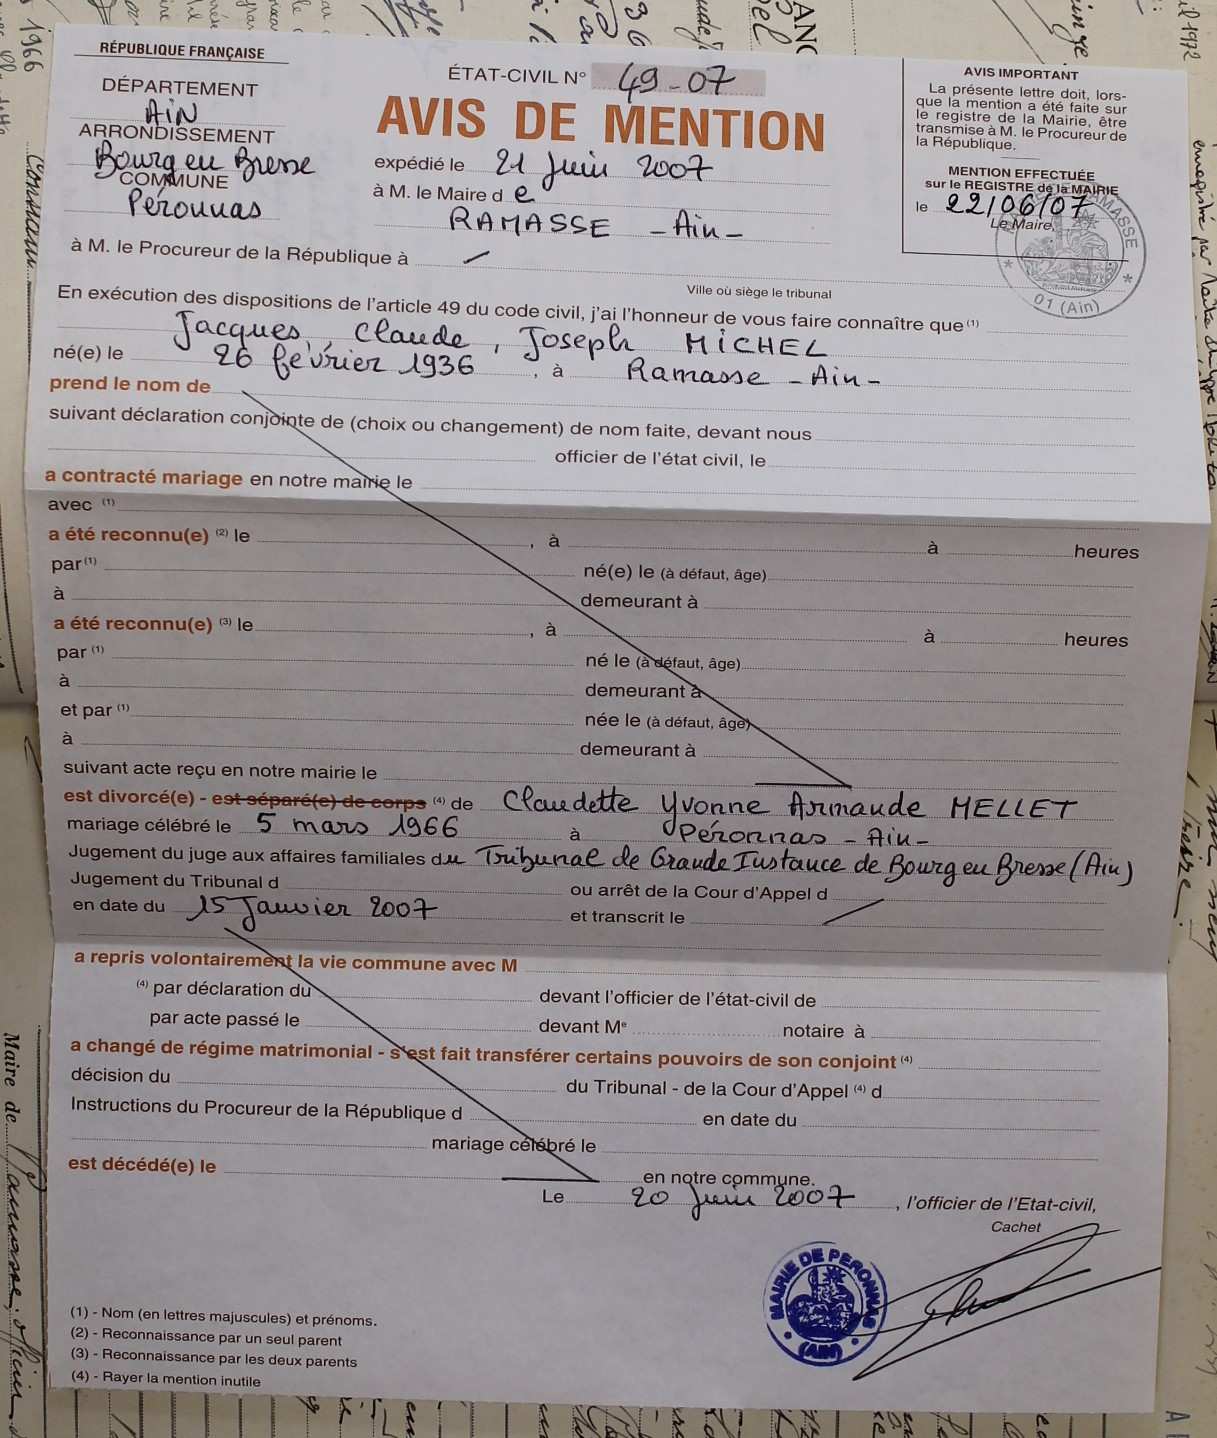 RÉPUBLIQUE FRANÇAISE
DÉPARTEMENT
AiN
ARRONDISSEMENT
Bourg en Bresse
COMMUNE
Péronnas
ÉTAT-CIVIL N° 49-07
AVIS DE MENTION
expédié le 21 Juin 2007
à M. le Maire d e
RAMASSE - Ain -
à M. le Procureur de la République à
Ville où siège le tribunal
AVIS IMPORTANT
La présente lettre doit, lors-
que la mention a été faite sur
le registre de la Mairie, être
transmise à M. le Procureur de
la République.
MENTION EFFECTUÉE
sur le REGISTRE de la MAIRIE
le 22/06/07
Le Maire,
RAMASSE
01 (Ain)
En exécution des dispositions de l'article 49 du code civil, j'ai l'honneur de vous faire connaître que (1)
Jacques, Claude, Joseph MiCHEL
né(e) le 26 février 1936, à Ramasse - Ain -
prend le nom de
suivant déclaration conjointe de (choix ou changement) de nom faite, devant nous
officier de l'état civil, le
a contracté mariage en notre mairie le
avec (1)
a été reconnu(e) (2) le , à à heures
par (1) né(e) le (à défaut, âge)
à demeurant à
a été reconnu(e) (3) le , à à heures
par (1) né le (à défaut, âge)
à demeurant à
et par (1) née le (à défaut, âge)
à demeurant à
suivant acte reçu en notre mairie le
est divorcé(e) - est séparé(e) de corps (4) de Claudette Yvonne Armande MELLET
mariage célébré le 5 mars 1966 à Péronnas - Ain -
Jugement du juge aux affaires familiales du Tribunal de Grande Instance de Bourg en Bresse (Ain)
Jugement du Tribunal d ou arrêt de la Cour d'Appel d
en date du 15 Janvier 2007 et transcrit le
a repris volontairement la vie commune avec M
(4) par déclaration du devant l'officier de l'état-civil de
par acte passé le devant Me notaire à
a changé de régime matrimonial - s'est fait transférer certains pouvoirs de son conjoint (4)
décision du du Tribunal - de la Cour d'Appel (4) d
Instructions du Procureur de la République d en date du
mariage célébré le
est décédé(e) le en notre commune.
Le 20 Juin 2007, l'officier de l'Etat-civil,
Cachet
MAIRIE DE PERONNAS
(AIN)
(1) - Nom (en lettres majuscules) et prénoms.
(2) - Reconnaissance par un seul parent
(3) - Reconnaissance par les deux parents
(4) - Rayer la mention inutile
1966
Maire de